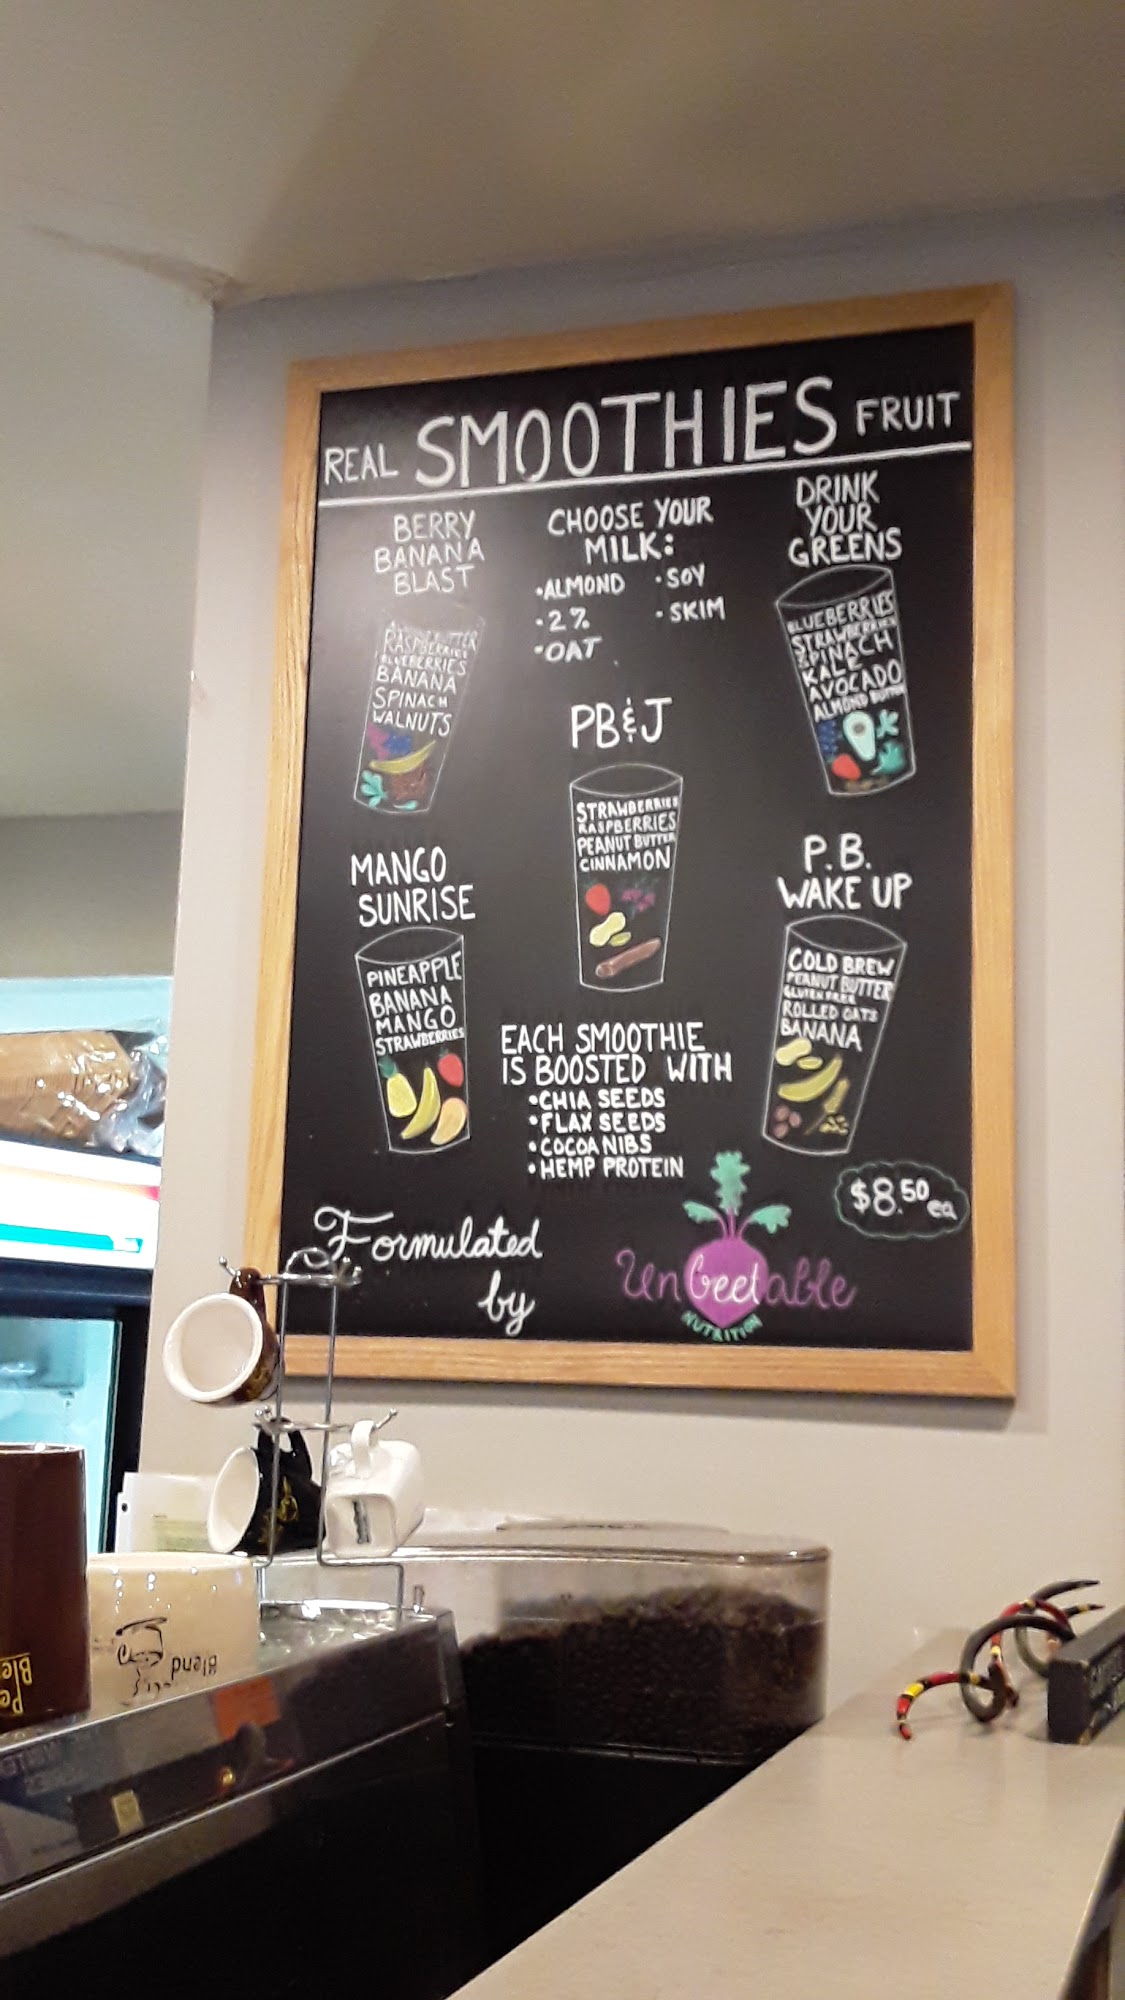 REAL SMOOTHIES FRUIT
BERRY
BANANA
BLAST
RASPBERRIES
BLUEBERRIES
BANANA
SPINACH
WALNUTS
CHOOSE YOUR
MILK:
•ALMOND •SOY
•2% •SKIM
•OAT
DRINK
YOUR
GREENS
BLUEBERRIES
STRAWBERRIES
SPINACH
KALE
AVOCADO
ALMOND BUTTER
PB&J
STRAWBERRIES
RASPBERRIES
PEANUT BUTTER
CINNAMON
MANGO
SUNRISE
PINEAPPLE
BANANA
MANGO
STRAWBERRIES
P.B.
WAKE UP
COLD BREW
PEANUT BUTTER
GLUTEN FREE
ROLLED OATS
BANANA
EACH SMOOTHIE
IS BOOSTED WITH
•CHIA SEEDS
•FLAX SEEDS
•COCOA NIBS
•HEMP PROTEIN
$8.50 ea
Formulated
by
Unbeetable
NUTRITION
Blend